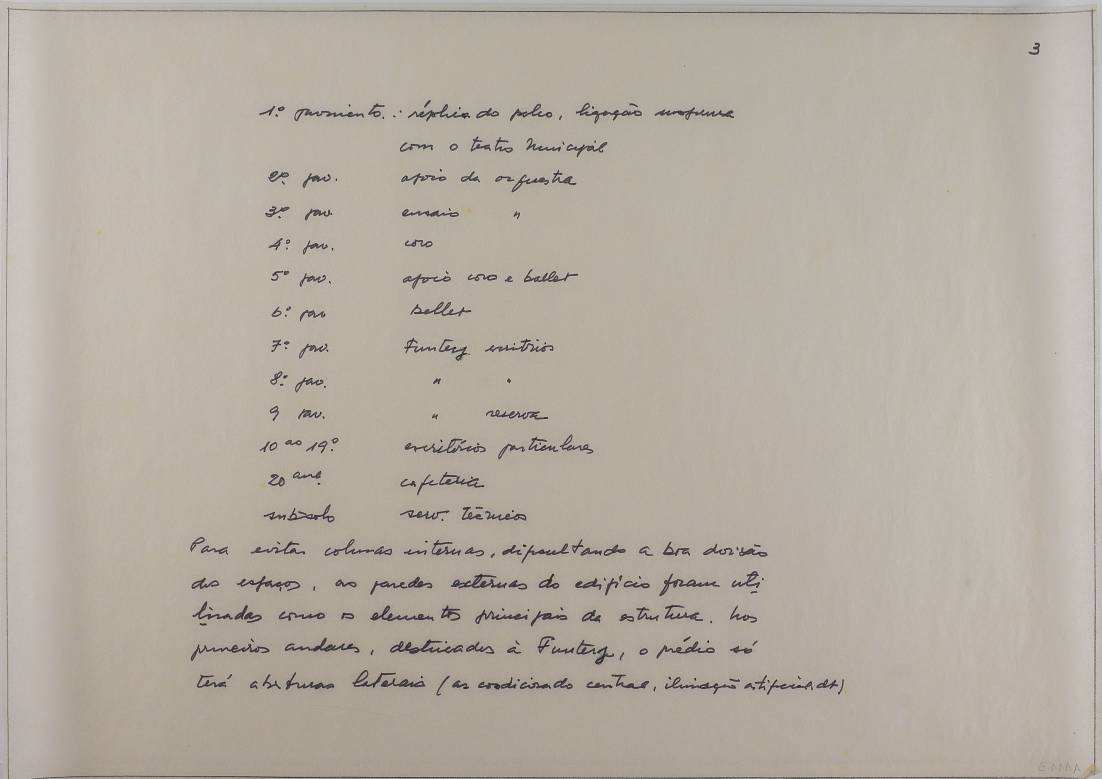 3
1º pavimento. : réplica do palco, ligação
com o teatro Municipal
2º. pav. apoio da orquestra
3º. pav. ensaio "
4º. pav. coro
5º pav. apoio coro e ballet
6º. pav ballet
7º. pav. Funterj escritórios
8º. pav. " "
9 pav. " reserva
10 ao 19º. escritórios particulares
20 cafeteria
subsolo serv. técnicos
Para evitar colunas internas, dificultando a boa divisão
dos espaços, as paredes externas do edifício foram uti
lizadas como os elementos principais da estrutura. Nos
primeiros andares, destinados à Funterj, o prédio só
terá aberturas laterais (ar condicionado central, iluminação artificial, etc)